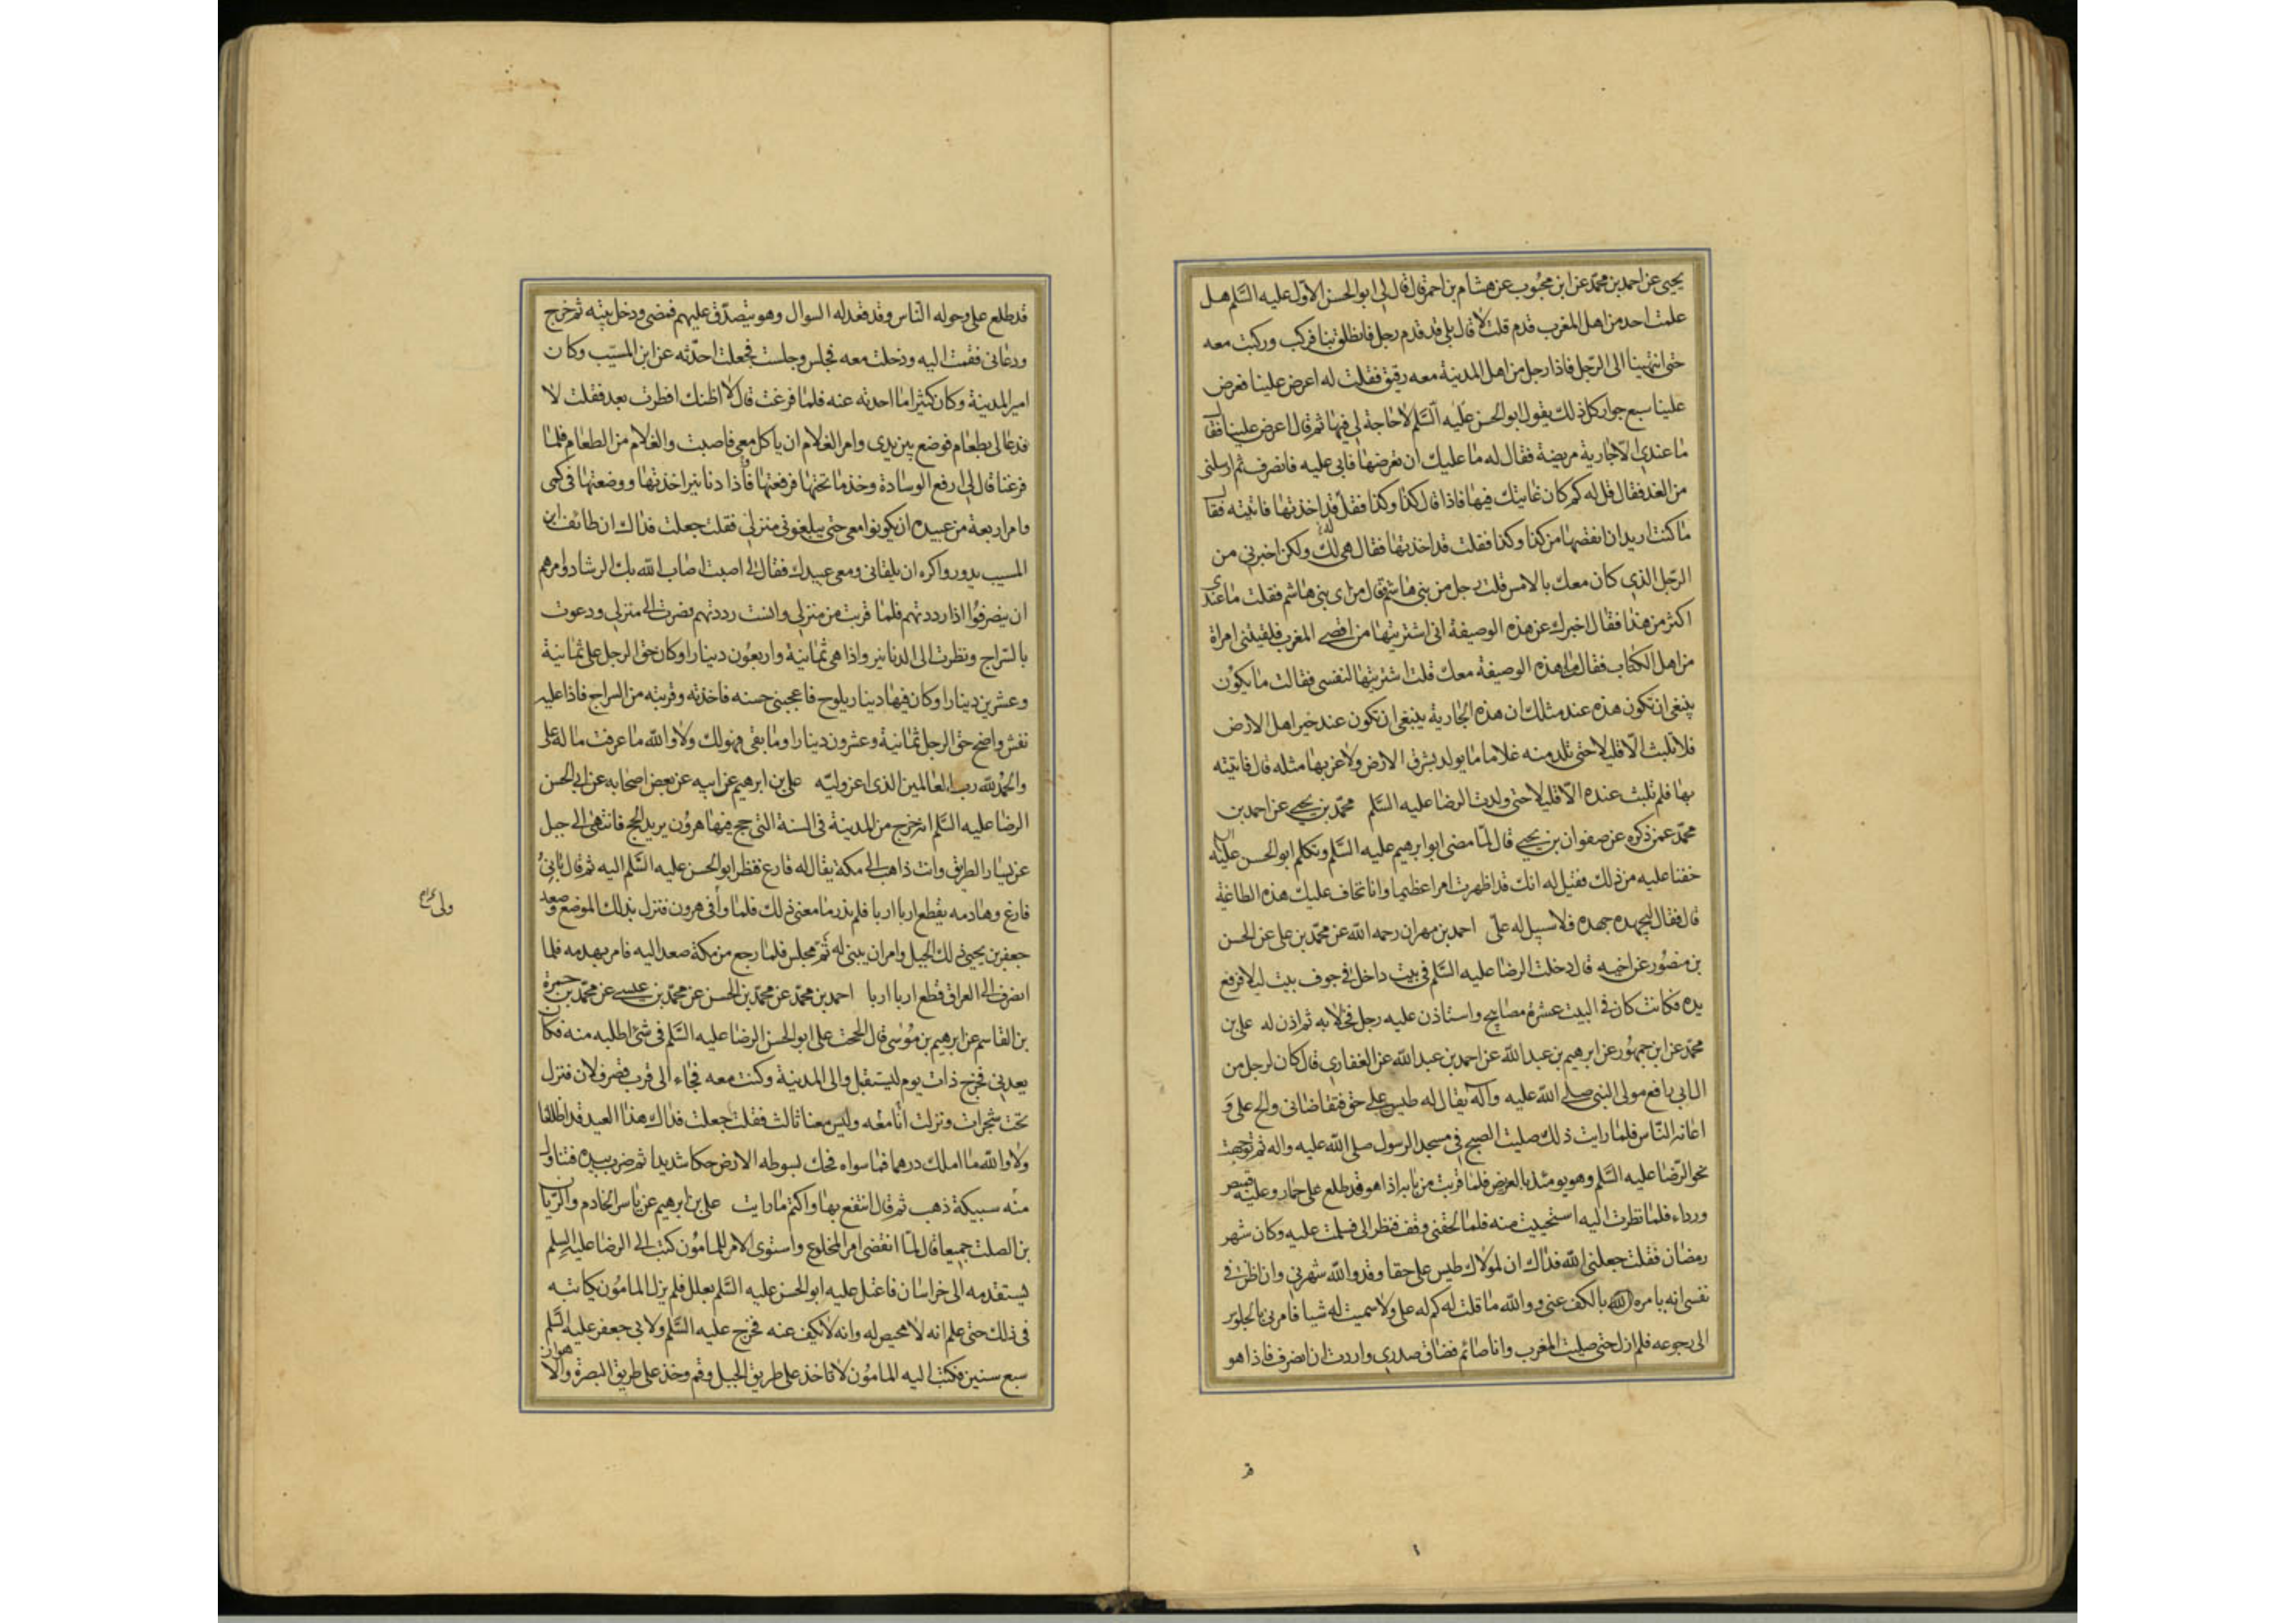 يحيى عن احمد بن محمد عن ابن محبوب عن هشام بن احمر قال قال لي ابوالحسن الاول عليه السلم هل
علمت احد من اهل المغرب قدم قلت لا قال بلى قد قدم رجل فانطلق بنا فركب وركبت معه
حتى انتهينا الى الرجل فاذا رجل من اهل المدينة معه رقيق فقلت له اعرض علينا فعرض
علينا سبع جوار كل ذلك يقول ابوالحسن عليه السلم لا حاجة لي فيها ثم قال اعرض علينا فقال
ما عندي الا جارية مريضة فقال له ما عليك ان تعرضها فابى عليه فانصرف ثم ارسلني
من الغد فقال قل له كم كان غايتك فيها فاذا قال كذا وكذا فقل قد اخذتها فاتيته فقال
ما كنت اريد ان انقصها من كذا وكذا فقلت قد اخذتها فقال هي لك ولكن اخبرني من
الرجل الذي كان معك بالامس قلت رجل من بني هاشم قال من اى بني هاشم فقلت ما عندي
اكثر من هذا فقال اخبرك عن هذه الوصيفة اني اشتريتها من اقصى المغرب فلقيتني امراة
من اهل الكتاب فقالت ما هذه الوصيفة معك قلت اشتريتها لنفسي فقالت ما يكون
ينبغي ان تكون هذه عند مثلك ان هذه الجارية ينبغي ان تكون عند خير اهل الارض
فلا تلبث الا قليلا حتى تلد منه غلاما ما يولد بشرق الارض ولا غربها مثله قال فاتيته
بها فلم تلبث عنده الا قليلا حتى ولدت الرضا عليه السلم محمد بن يحيى عن احمد بن
محمد عمن ذكره عن صفوان بن يحيى قال لما مضى ابوابرهيم عليه السلم وتكلم ابوالحسن عليه السلم
خفنا عليه من ذلك فقيل له انك قد اظهرت امرا عظيما وانا نخاف عليك هذه الطاغية
قال فقال ليجهد جهده فلا سبيل له على احمد بن مهران رحمه الله عن محمد بن على عن الحسن
بن منصور عن اخيه قال دخلت الرضا عليه السلم في بيت داخل في جوف بيت ليلا فرفع
يده فكانت كان في البيت عشرة مصابيح واستاذن عليه رجل فخلا به ثم اذن له على بن
محمد عن ابن جمهور عن ابرهيم بن عبدالله عن احمد بن عبدالله عن الغفاري قال كان لرجل من
ال ابي رافع مولى النبي صلى الله عليه واله يقال له طيس على حق فتقاضاني والح على و
اعانه الناس فلما رايت ذلك صليت الصبح في مسجد الرسول صلى الله عليه واله ثم توجهت
نحو الرضا عليه السلم وهو يومئذ بالعريض فلما قربت من بابه اذا هو قد طلع على حمار وعليه قميص
ورداء فلما نظرت اليه استحييت منه فلما لحقني وقف فنظر الى فسلمت عليه وكان شهر
رمضان فقلت جعلني الله فداك ان لمولاك طيس على حقا وقد والله شهرني وانا ظننت في
نفسي انه يامره الله بالكف عني ووالله ما قلت له كم له على ولا سميت له شيا فامرني بالجلوس
الى رجوعه فلم ازل حتى صليت المغرب وانا صائم فضاق صدري واردت ان انصرف فاذا هو
قر
قد طلع على وحوله الناس وقد قعد له السوال وهو يتصدق عليهم فمضى ودخل بيته ثم خرج
ودعاني فقمت اليه ودخلت معه فجلس وجلست فجعلت احدثه عن ابن المسيب وكان
امير المدينة وكان كثيرا ما احدثه عنه فلما فرغت قال لا اظنك افطرت بعد فقلت لا
فدعا لي بطعام فوضع بين يدى وامر الغلام ان ياكل معي فاصبت والغلام من الطعام فلما
فرغنا قال لي ارفع الوسادة وخذ ما تحتها فرفعتها فاذا دنانير اخذتها ووضعتها في كمي
وامر اربعة من عبيده ان يكونوا معي حتى يبلغوني منزلي فقلت جعلت فداك ان طائف ابن
المسيب يدور واكره ان يلقاني ومعي عبيدك فقال لي اصبت اصاب الله بك الرشاد وامرهم
ان ينصرفوا اذا رددتهم فلما قربت من منزلي وانست رددتهم فصرت الى منزلي ودعوت
بالسراج ونظرت الى الدنانير واذا هي ثمانية واربعون دينارا وكان حق الرجل على ثمانية
وعشرين دينارا وكان فيها دينار يلوح فاعجبني حسنه فاخذته وقربته من السراج فاذا عليه
نقش واضح حق الرجل ثمانية وعشرون دينارا وما بقي فهو لك ولا والله ما عرفت ما له على
والحمد لله رب العالمين الذي اعز وليه على بن ابرهيم عن ابيه عن بعض اصحابه عن ابي الحسن
الرضا عليه السلم انه خرج من المدينة في السنة التي حج فيها هرون يريد الحج فانتهى الى جبل
عن يسار الطريق وانت ذاهب الى مكة يقال له فارع فنظر ابوالحسن عليه السلم اليه ثم قال باني
فارع وهادمه يقطع اربا اربا فلم ندر ما معنى ذلك فلما وافى هرون فنزل بذلك الموضع وصعد
جعفر بن يحيى ذلك الجبل وامر ان يبنى له ثم مجلس فلما رجع من مكة صعد اليه فامر بهدمه فلما
انصرف الى العراق قطع اربا اربا احمد بن محمد عن محمد بن الحسن عن محمد بن عيسى عن محمد بن حمزة
بن القاسم عن ابرهيم بن موسى قال الححت على ابوالحسن الرضا عليه السلم في شئ اطلبه منه فكان
يعدني فخرج ذات يوم ليستقبل والى المدينة وكنت معه فجاء الى قرب قصر فلان فنزل
تحت شجرات ونزلت انا معه وليس معنا ثالث فقلت جعلت فداك هذا العيد قد اظلنا
ولا والله ما املك درهما فما سواه فحك بسوطه الارض حكا شديدا ثم ضرب بيده فتناول
منه سبيكة ذهب ثم قال انتفع بها واكتم ما رايت على بن ابرهيم عن ياسر الخادم والريان
بن الصلت جميعا قال لما انقضى امر المخلوع واستوى الامر للمامون كتب الى الرضا عليه السلم
يستقدمه الى خراسان فاعتل عليه ابوالحسن عليه السلم بعلل فلم يزل المامون يكاتبه
في ذلك حتى علم انه لا محيص له وانه لا يكف عنه فخرج عليه السلم ولابي جعفر عليه السلم
سبع سنين فكتب اليه المامون لا تاخذ على طريق الجبل وقم وخذ على طريق البصرة والاهواز